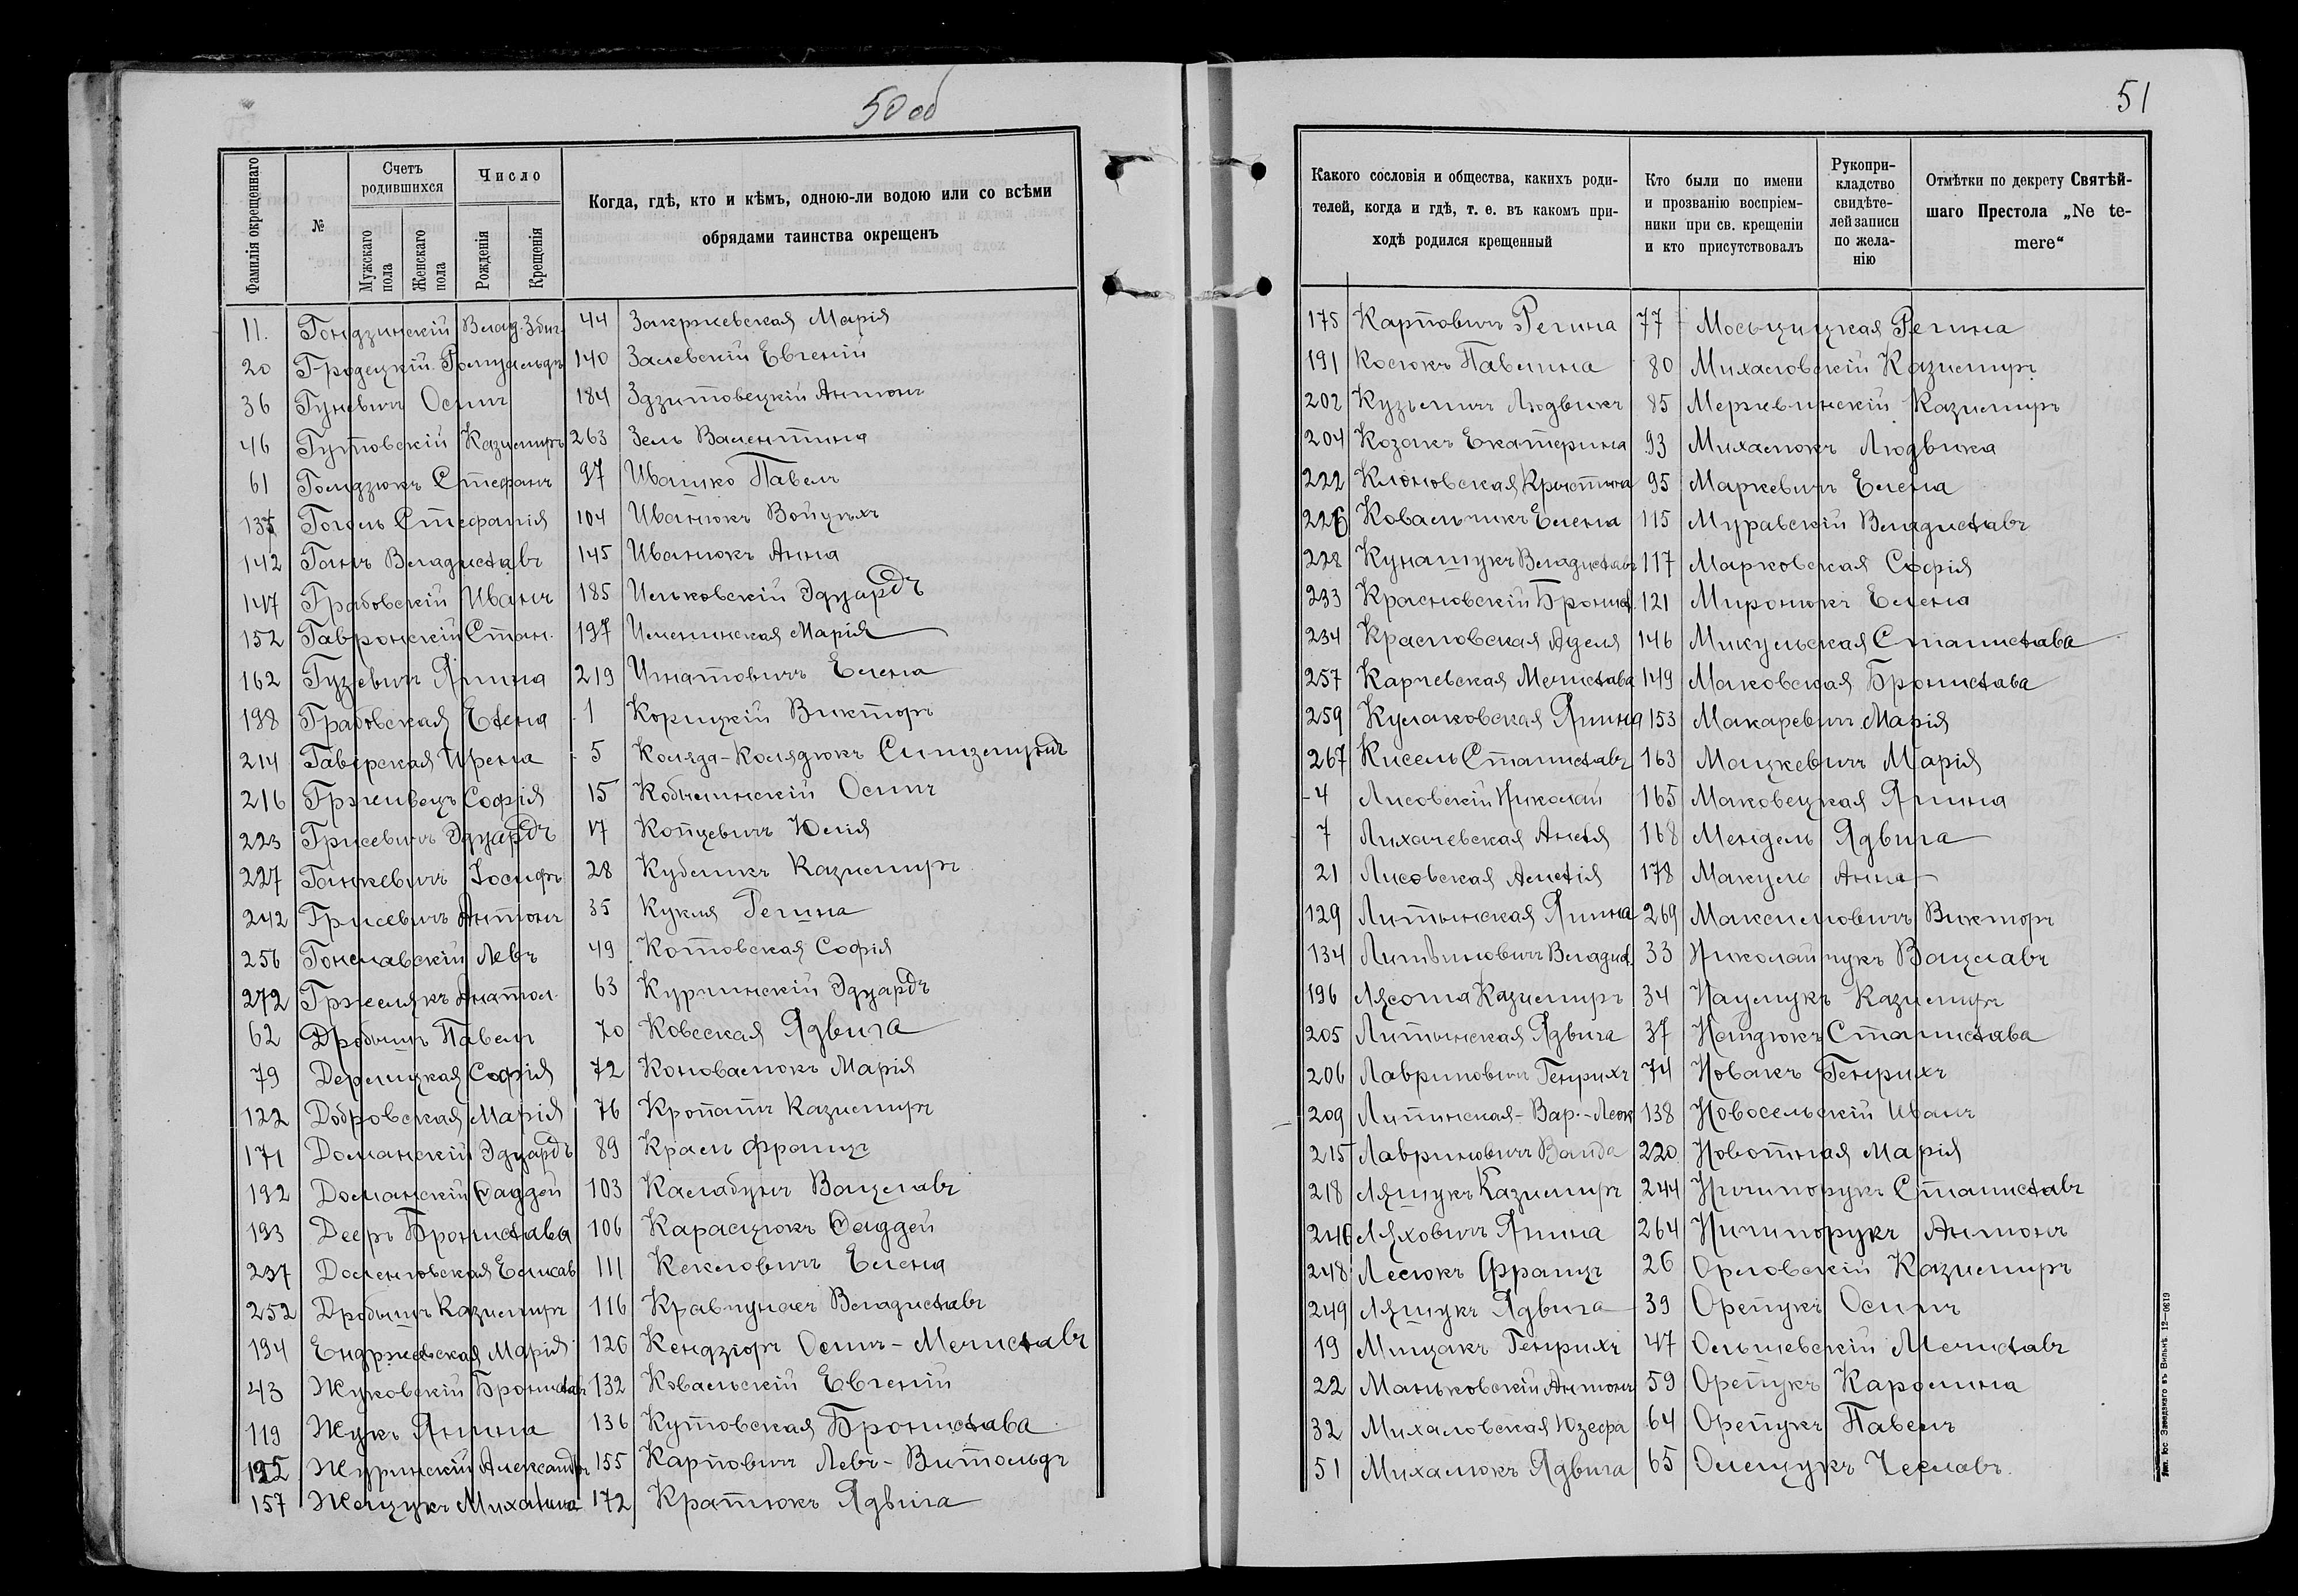 50 об
Фамилія окрещеннаго
№
Счетъ родившихся
Мужскаго пола
Женскаго пола
Число
Рожденія
Крещенія
Когда, гдѣ, кто и кѣмъ, одною-ли водою или со всѣми
обрядами таинства окрещенъ
11. Гондзинскій Влад. Збиг.
20 Гродецкій Ромуальдъ
36 Гуневичъ Осипъ
46 Гутовскій Казиміръ
61 Голидзюкъ Стефанъ
137 Гоголь Стефанія
142 Ганъ Владиславъ
147 Грабовскій Иванъ
152 Гавронскій Стан.
162 Гузевичъ Янина
198 Грабовская Елена
214 Гавѣрская Ирена
216 Грживецъ Софія
223 Грисевичъ Эдуардъ
227 Ганкевичъ Іосифъ
242 Грисевичъ Антонъ
256 Гонславскій Левъ
272 Гржелякъ Анатол.
62 Дробышъ Павелъ
79 Дерлицкая Софія
122 Добровская Марія
171 Доманскій Эдуардъ
192 Доманскій Фаддей
193 Дееръ Брониславъ
237 Доленговская Елисав
252 Дробышъ Казиміръ
194 Ендржеевская Марія
43 Жуковскій Брониславъ
119 Жукъ Янина
195 Журинскій Александръ
157 Жещукъ Михалина
44 Закржевская Марія
140 Залевскій Евгеній
184 Здзитовецкій Антонъ
263 Зель Валентина
97 Ивашко Павелъ
104 Иванюкъ Войцѣхъ
145 Иванюкъ Анна
185 Ильковскій Эдуардъ
197 Илемнинская Марія
219 Игнатовичъ Елена
1 Корицкій Викторъ
5 Коляда-Колядюкъ Сигизмундъ
15 Кобылинскій Осипъ
17 Копцевичъ Юлія
28 Кубликъ Казиміръ
35 Кукля Регина
49 Котовская Софія
63 Курчинскій Эдуардъ
70 Ковсская Ядвига
72 Коновалюкъ Марія
76 Кропатъ Казиміръ
89 Краль Францъ
103 Калабунъ Вацлавъ
106 Карасцюкъ Фаддей
111 Кекловичъ Елена
116 Кравчунасъ Владиславъ
126 Кендзіоръ Осипъ-Мечиславъ
132 Ковальскій Евгеній
136 Кутовская Бронислава
155 Карповичъ Левъ-Витольдъ
172 Кратюкъ Ядвига
51
Какого сословія и общества, какихъ роди-
телей, когда и гдѣ, т. е. въ какомъ при-
ходѣ родился крещенный
Кто были по имени
и прозванію воспріем-
ники при св. крещеніи
и кто присутствовалъ
Рукопри-
кладство
свидѣте-
лей записи
по жела-
нію
Отмѣтки по декрету Святѣй-
шаго Престола „Ne te-
mere“
175 Карповичъ Регина
191 Косюкъ Павлина
202 Кузьмичъ Людвикъ
204 Козакъ Екатерина
222 Клоновская Кристина
226 Ковальчикъ Елена
228 Кунашукъ Владиславъ
233 Красновскій Брониc.
234 Красловская Аделя
257 Карчевская Мечислава
259 Кулаковская Янина
267 Кисель Станиславъ
4 Лисовскій Николай
7 Лихачевская Анеля
21 Лисовская Амелія
129 Литынская Янина
134 Литвиновичъ Владисл.
196 Лясота Казиміръ
205 Литынская Ядвига
206 Лавриновичъ Генрихъ
209 Литинская-Вар.-Леок
215 Лавриновичъ Ванда
218 Лящукъ Казиміръ
246 Ляховичъ Янина
248 Лесюкъ Францъ
249 Лящукъ Ядвига
19 Мицакъ Генрихъ
22 Маньковскій Антонъ
32 Михаловская Юзефа
51 Михалюкъ Ядвига
77 Мосьцицкая Регина
80 Михаловскій Казиміръ
85 Мержвинскій Казиміръ
93 Михалюкъ Людвика
95 Маркевичъ Елена
115 Муравскій Владиславъ
117 Марковская Софія
121 Миронюкъ Елена
146 Микульская Станислава
149 Маковская Бронислава
153 Макаревичъ Марія
163 Мацкевичъ Марія
165 Маковецкая Янина
168 Мендель Ядвига
178 Макуль Анна
269 Максимовичъ Викторъ
33 Николайчукъ Вацлавъ
34 Наумукъ Казиміръ
37 Найдюкъ Станислава
74 Новакъ Генрихъ
138 Новосельскій Иванъ
220 Новотная Марія
244 Ничипорукъ Станиславъ
264 Ничипорукъ Антонъ
26 Орловскій Казиміръ
39 Орепукъ Осипъ
47 Ольшевскій Мечиславъ
59 Орепукъ Каролина
64 Орепукъ Павелъ
65 Олещукъ Чеславъ.
Тип. Іос. Завадзкаго въ Вильнѣ. 12—0619